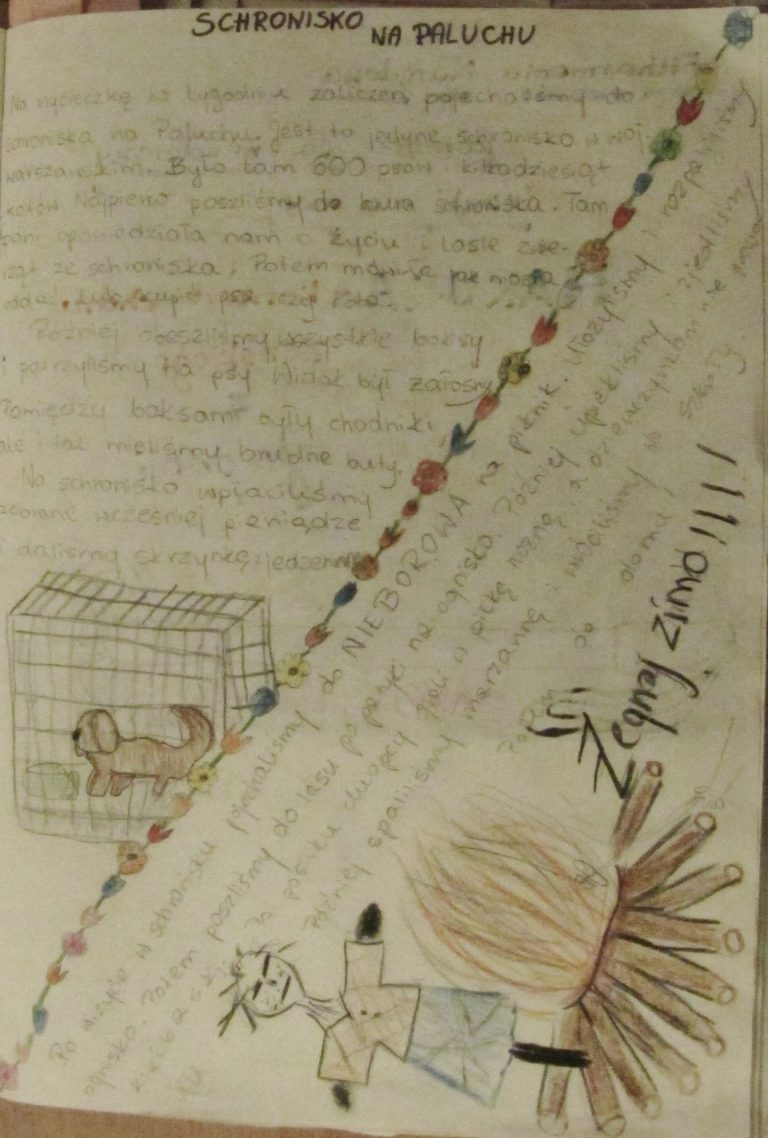 SCHRONISKO NA PALUCHU
Na wycieczkę w tygodniu zaliczeń pojechaliśmy do
schroniska na Paluchu. Jest to jedyne schronisko w woj.
warszawskim. Było tam 600 psów i kilkadziesiąt
kotów. Najpierw poszliśmy do biura schroniska. Tam
pani opowiedziała nam o życiu i losie zwie-
rząt ze schroniska. Potem mówiła jak można
oddać lub kupić psa czy kota.
Później obeszliśmy wszystkie boksy
i patrzyliśmy na psy. Widok był żałosny.
Pomiędzy boksami były chodniki
ale i tak mieliśmy brudne buty.
Na schronisko wpłaciliśmy
zebrane wcześniej pieniądze
i daliśmy skrzynkę jedzenia.
Po wizycie w schronisku pojechaliśmy do NIEBOROWA na piknik. Ułożyliśmy i rozpaliliśmy
ognisko. Potem poszliśmy do lasu po patyki na ognisko. Później upiekliśmy i zjedliśmy
kiełbaski. Po posiłku chłopcy grali w piłkę nożną, a dziewczynkom nie
Później spaliliśmy marzannę i wróciliśmy do szkoły.
Potem do domu.
Żegnaj zimo!!!!